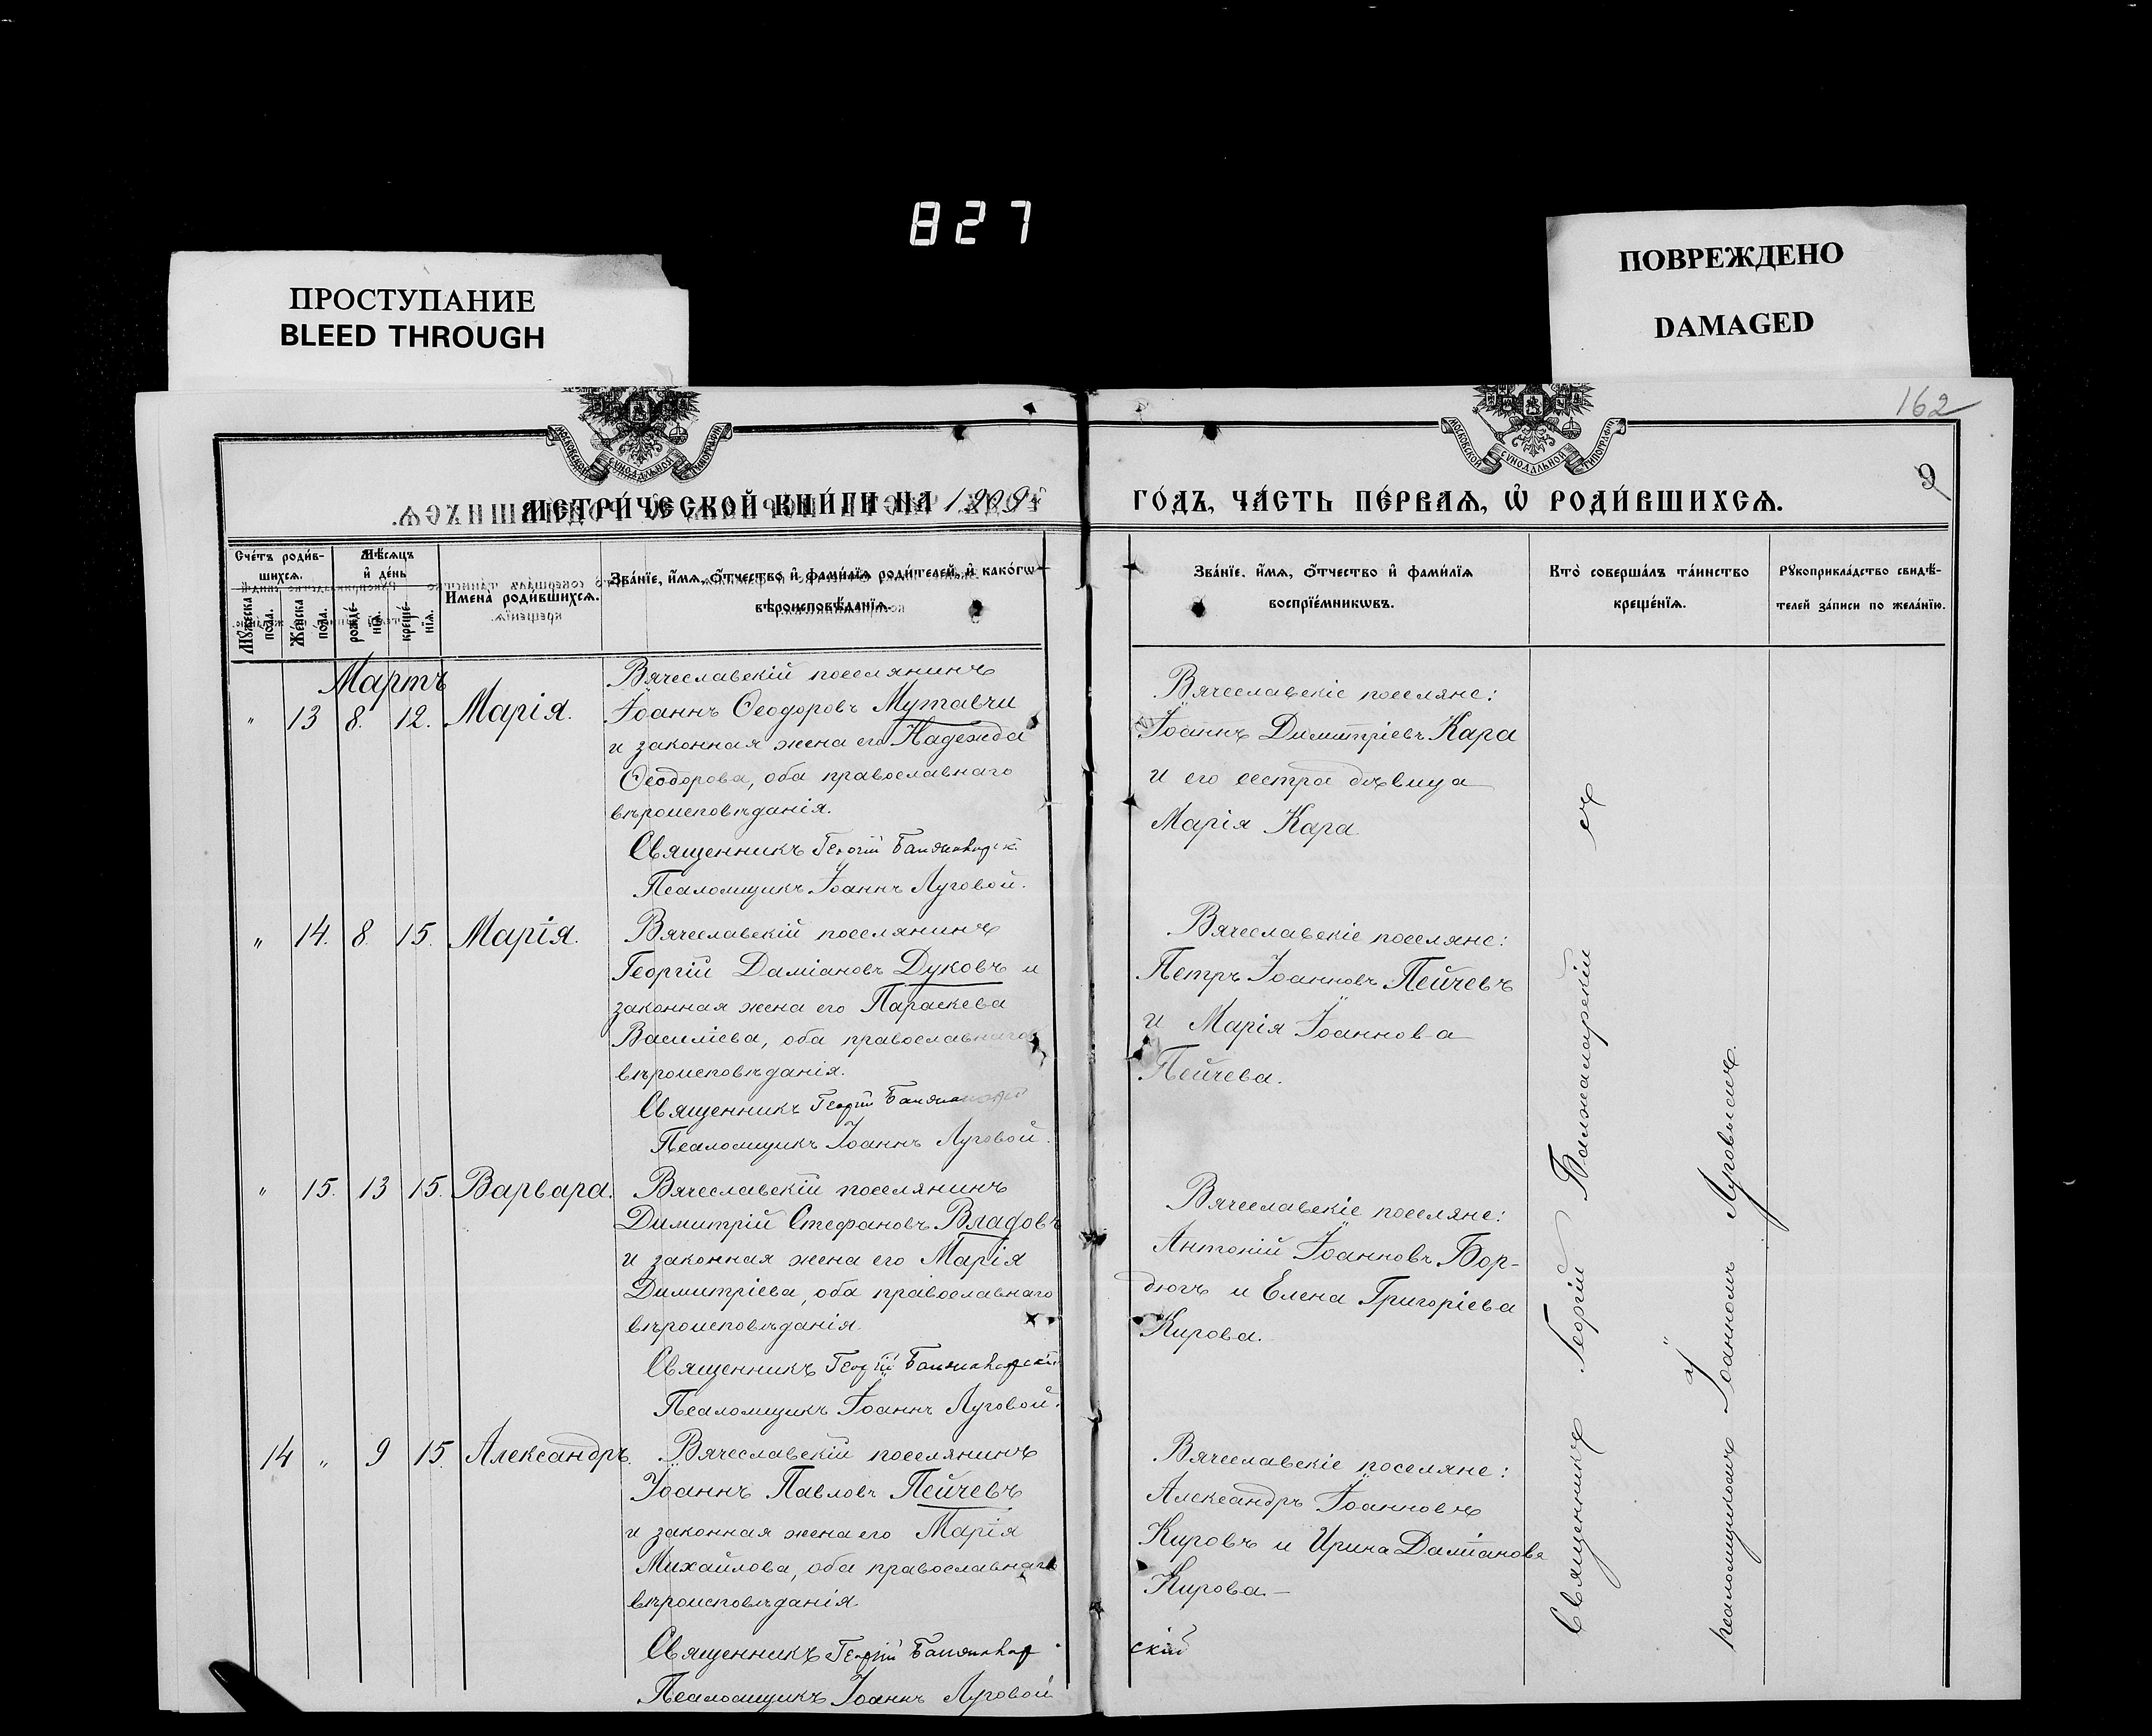 827
ПРОСТУПАНИЕ
BLEED THROUGH
ПОВРЕЖДЕНО
DAMAGED
162
9
МОСКОВСКОЙ СѴНОДАЛЬНОЙ ТИПОГРАФІИ
МОСКОВСКОЙ СѴНОДАЛЬНОЙ ТИПОГРАФІИ
МЕТРИ́ЧЕСКОЙ КНИ́ГИ НА 1909
ГО́ДЪ, ЧА́СТЬ ПЕ́РВАѦ, Ѡ҆ РОДИ́ВШИХСѦ.
Сче́тъ роди́в-
шихсѧ.
Мѣ́сѧцъ
и҆ де́нь
Мꙋ́жеска
по́ла.
Же́нска
по́ла.
рожде́-
нїѧ.
креще́-
нїѧ.
Имена̀ роди́вшихсѧ.
Зва́нїе, и҆́мѧ, ѻ҆́тчество и҆ фами́лїѧ роди́телей, и҆ како́гѡ
вѣроисповѣ́данїѧ.
Зва́нїе, и҆́мѧ, ѻ҆́тчество и҆ фами́лїѧ
воспрїе́мникѡвъ.
Кто̀ соверша́лъ та́инство
креще́нїѧ.
Рꙋкоприкла́дство свидѣ́-
телей за́писи по жела́нїю.
Мартъ
" 13 8. 12. Марія.
Вячеславскій поселянинъ
Іоаннъ Ѳеодоровъ Мутавчи
и законная жена его Надежда
Ѳеодорова, оба православнаго
вѣроисповѣданія.
Священникъ Георгій Балжаларск.
Псаломщикъ Іоаннъ Луговой.
Вячеславскіе поселяне:
Іоаннъ Димитріевъ Кара
и его сестра дѣвица
Марія Кара
" 14. 8. 15. Марія.
Вячеславскій поселянинъ
Георгій Даміановъ Дуковъ и
законная жена его Параскева
Василіева, оба православнаго
вѣроисповѣданія.
Священникъ Георгій
Псаломщикъ Іоаннъ Луговой.
Вячеславскіе поселяне:
Петръ Іоанновъ Пейчевъ
и Марія Іоаннова
Пейчева.
" 15. 13 15. Варвара.
Вячеславскій поселянинъ
Димитрій Стефановъ Владовъ
и законная жена его Марія
Димитріева, оба православнаго
вѣроисповѣданія.
Священникъ Георгій
Псаломщикъ Іоаннъ Луговой.
Вячеславскіе поселяне:
Антоній Іоанновъ Бор-
дюгъ и Елена Григоріева
Кирова.
14 " 9 15. Александръ.
Вячеславскій поселянинъ
Іоаннъ Павловъ Пейчевъ
и законная жена его Марія
Михайлова, оба православнаго
вѣроисповѣданія.
Священникъ Георгій
скій
Псаломщикъ Іоаннъ Луговой
Вячеславскіе поселяне:
Александръ Іоанновъ
Кировъ и Ирина Даміанова
Кирова.—
Священникъ Георгій съ
псаломщикомъ Іоанномъ Луговымъ.